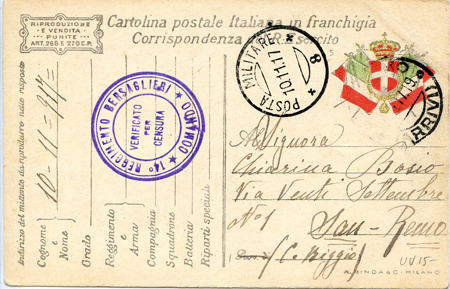 RIPRODUZIONE
E VENDITA
PUNITE
ART. 268 E 270 C.P.
Cartolina postale Italiana in franchigia
Corrispondenza del R. Esercito
POSTA MILITARE
10.11.17
8
ARRIVI
14° REGGIMENTO BERSAGLIERI
COMANDO
VERIFICATO
PER
CENSURA
Indirizzo del mittente da riprodurre nelle risposte
10-11-917=
Cognome
e
Nome
Grado
Reggimento
e
Arma
Compagnia
Squadrone
Batteria
Riparti speciali
Signora
Chiarina Bosio
Via Venti Settembre
N° 1 San-Remo
(C. Riggio)
A. RINDA & C. - MILANO